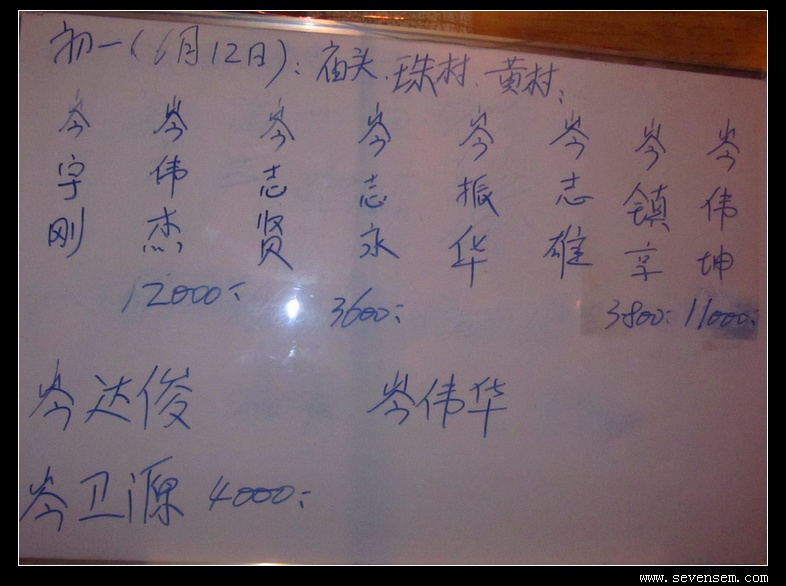 初一(6月12日):庙头、珠村、黄村:
岑宇刚
岑伟杰
12000:
岑志贤
岑志永
3600:
岑振华
岑志雄
岑镇享
3800:
岑伟坤
11000:
岑达俊
岑伟华
岑卫源 4000:
www.sevensem.com